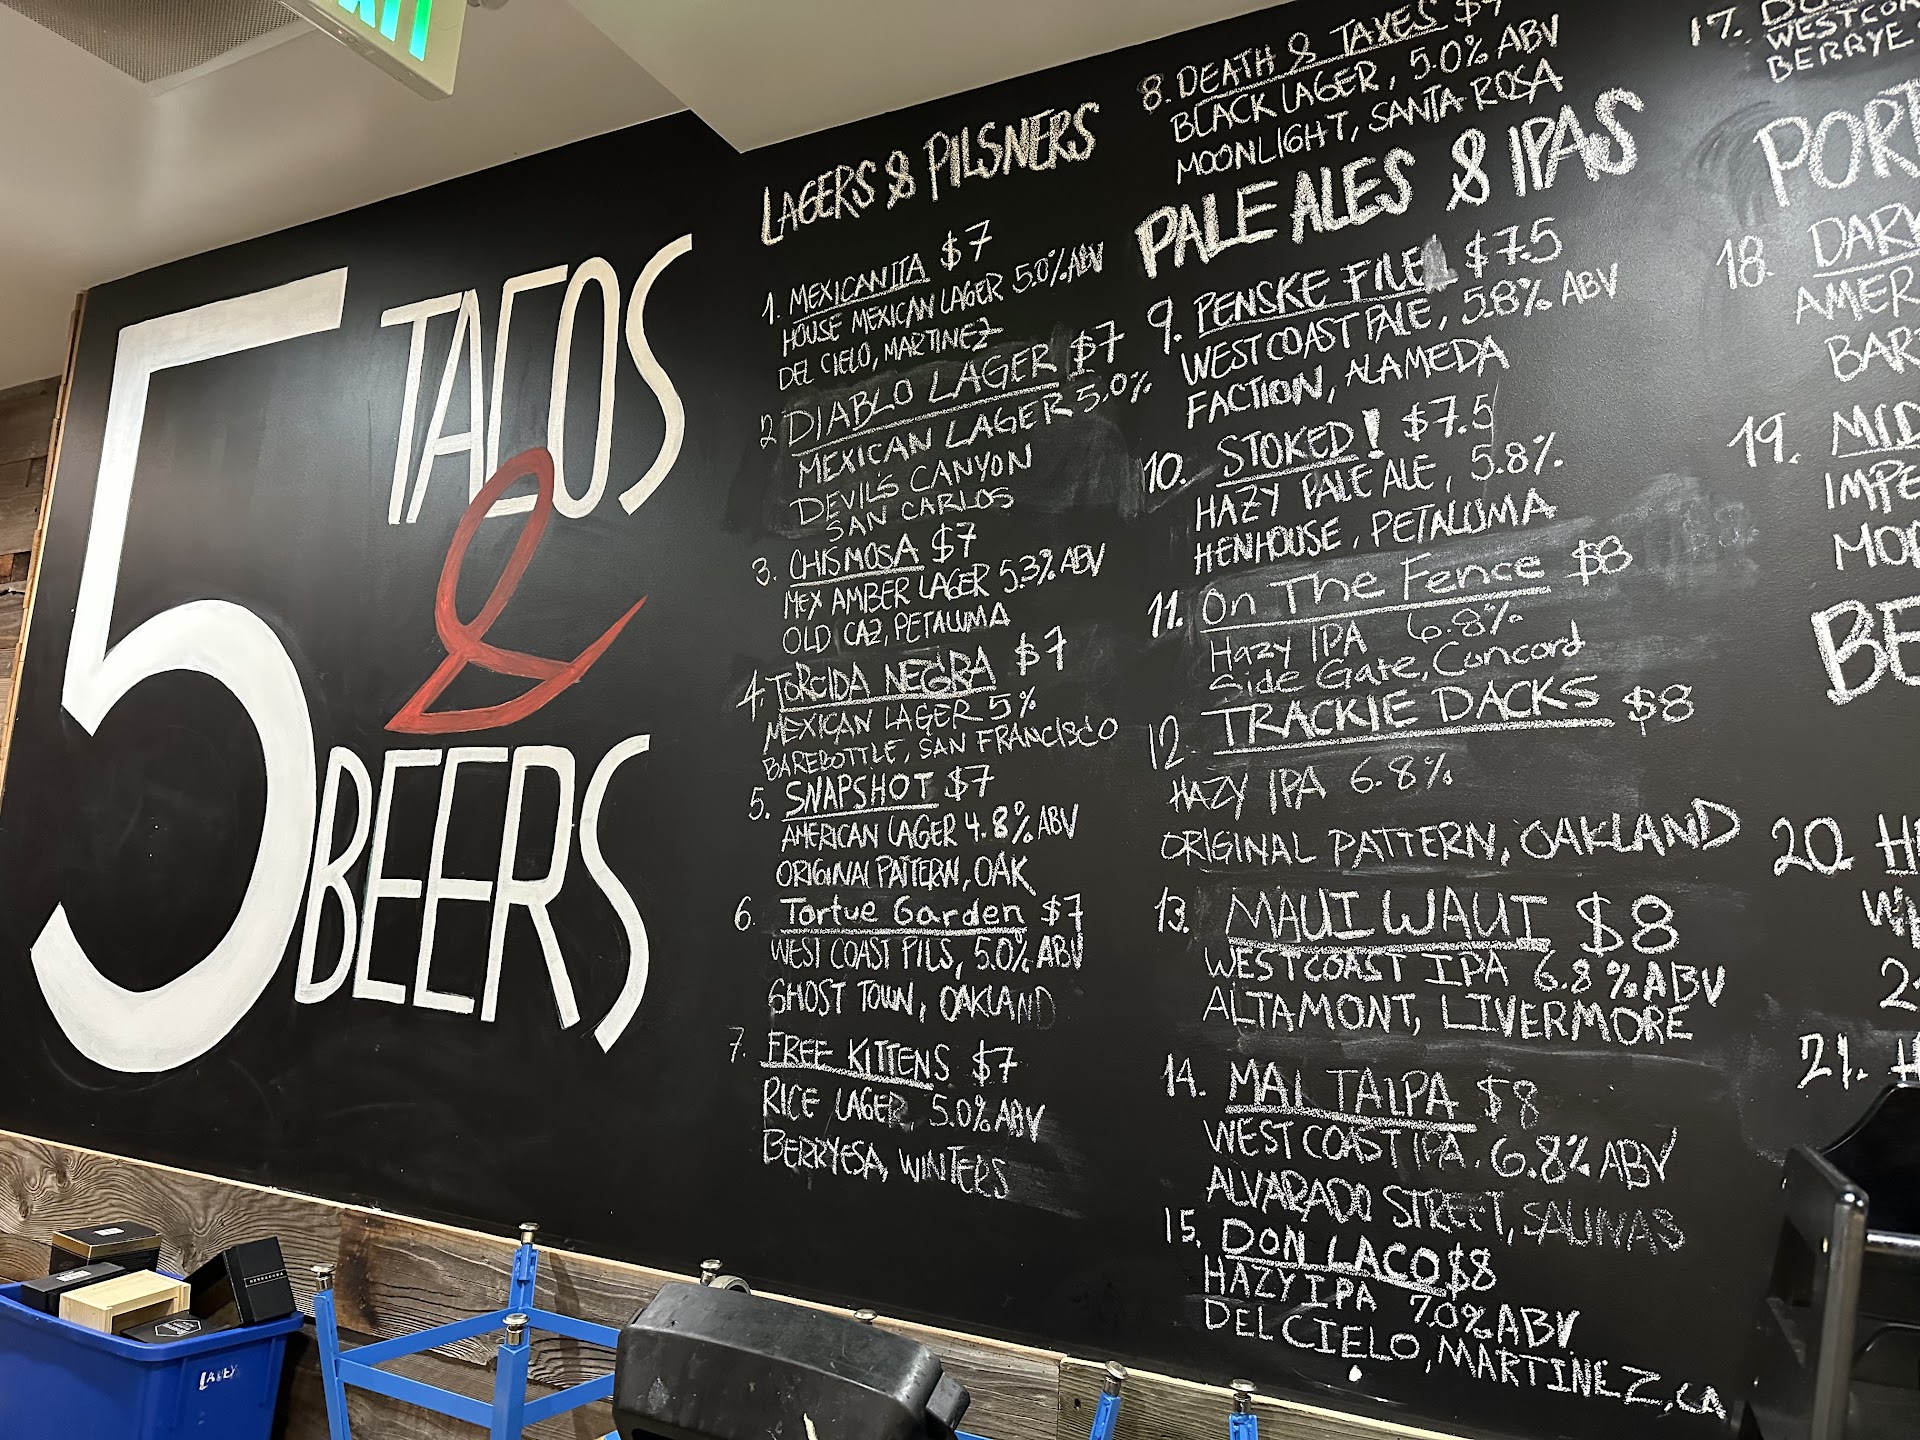 EXIT
5
TACOS
&
BEERS
LAGERS & PILSNERS
1. MEXICANITA $7
HOUSE MEXICAN LAGER 5.0% ABV
DEL CIELO, MARTINEZ
2 DIABLO LAGER $7
MEXICAN LAGER 5.0%
DEVILS CANYON
SAN CARLOS
3. CHISMOSA $7
MEX AMBER LAGER 5.3% ABV
OLD CAZ, PETALUMA
4. TORCIDA NEGRA $7
MEXICAN LAGER 5%
BAREBOTTLE, SAN FRANCISCO
5. SNAPSHOT $7
AMERICAN LAGER 4.8% ABV
ORIGINAL PATTERN, OAK
6. Tortue Garden $7
WEST COAST PILS, 5.0% ABV
GHOST TOWN, OAKLAND
7. FREE KITTENS $7
RICE LAGER, 5.0% ABV
BERRYESA, WINTERS
8. DEATH & TAXES
BLACK LAGER, 5.0% ABV
MOONLIGHT, SANTA ROSA
PALE ALES & IPAS
9. PENSKE FILE $7.5
WEST COAST PALE, 5.8% ABV
FACTION, ALAMEDA
10. STOKED! $7.5
HAZY PALE ALE, 5.8%
HENHOUSE, PETALUMA
11. On The Fence $8
Hazy IPA 6.8%
Side Gate, Concord
12. TRACKIE DACKS $8
HAZY IPA 6.8%
ORIGINAL PATTERN, OAKLAND
13. MAUI WAUI $8
WEST COAST IPA 6.8% ABV
ALTAMONT, LIVERMORE
14. MAI TAIPA $8
WEST COAST IPA, 6.8% ABV
ALVARADO STREET, SALINAS
15. DON LACO $8
HAZY IPA 7.0% ABV
DEL CIELO, MARTINEZ, CA
17.
WESTCO
BERRYE
POR
18. DARK
AMER
BAR
19. MID
IMPE
MO
BE
20. H
21. H